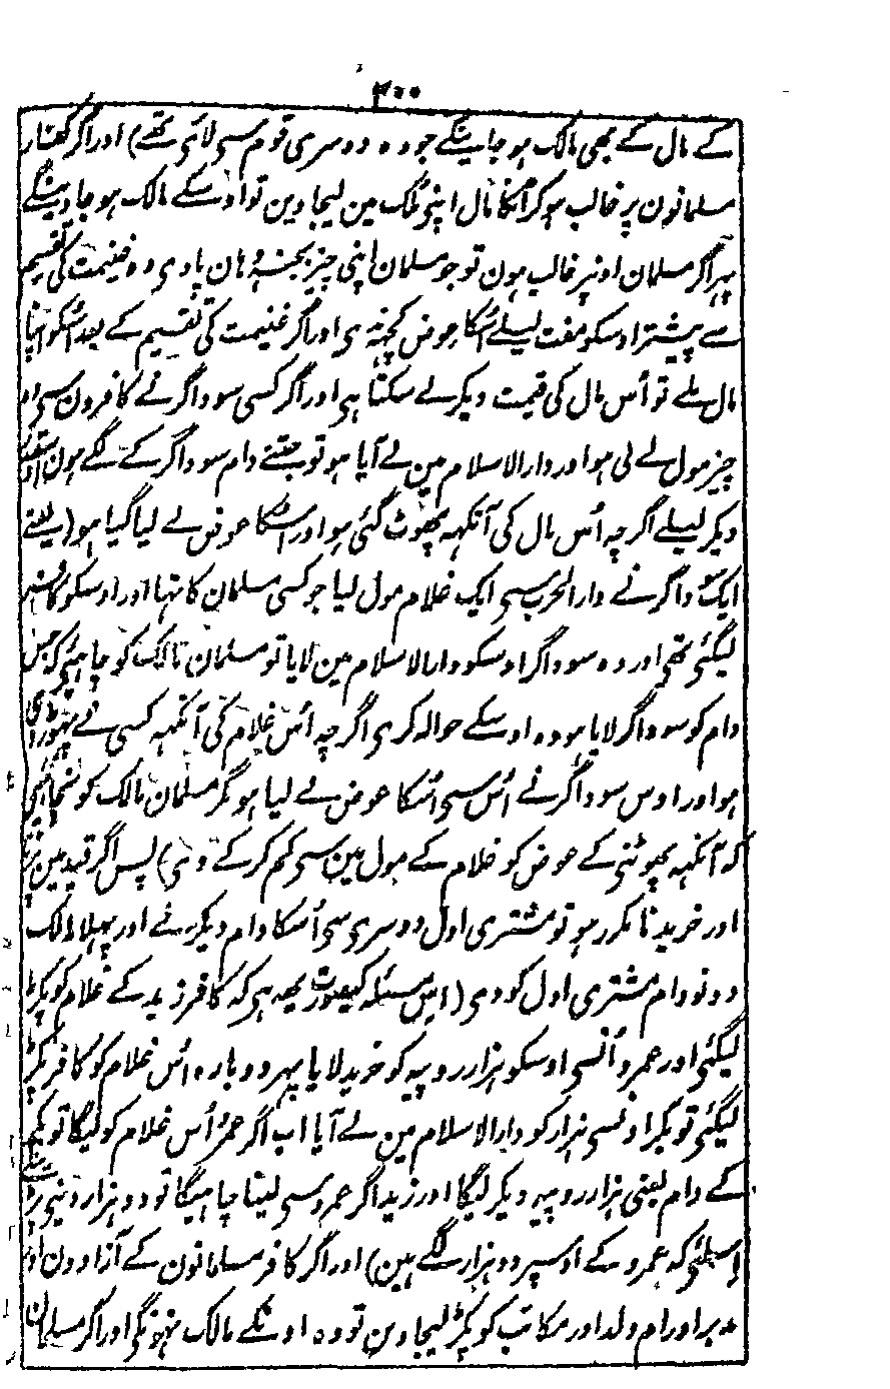 ۲۰۰
کے مال کے بھی مالک ہو جاینگے جو وہ دوسری قوم سی لائی تھے) اور اگر کفار
مسلمانون پر غالب ہوکر انکا مال اپنی ملک مین لیجاوین تو اوسکے مالک ہو جاوینگے
پہر اگر مسلمان اونپر غالب ہون تو جو مسلمان اپنی چیز بجنسہ وہان پاوی وہ غنیمت کی تقسیم
سے پیشتر اوسکو مفت لیلے اسکا عوض کچھ ندی اور اگر غنیمت کی تقسیم کے بعد اسکو اپنا
مال ملے تو اُس مال کی قیمت دیکر لے سکتا ہی اور اگر کسی سوداگر نے کافرون سی وہ
چیز مول لے لی ہو اور دارالاسلام مین لے آیا ہو تو جتنے دام سوداگر کے لگے ہون اوسیقدر
دیکر لیلے اگرچہ اُس مال کی آنکہہ پھوٹ گئی ہو اور اسکا عوض لے لیا گیا ہو (یعنے
ایک سوداگر نے دارالحرب سی ایک غلام مول لیا جو کسی مسلمان کا تہا اور اوسکو کافر
لیگئی تھی اور وہ سوداگر اوسکو دارالاسلام مین لایا تو مسلمان مالک کو چاہئی کہ جس
دام کو سوداگر لایا ہو وہ اوسکے حوالہ کری اگرچہ اُس غلام کی آنکہہ کسی نے پھوڑ دی
ہو اور اوس سوداگر نے اُس سی اسکا عوض لے لیا ہو مگر مسلمان مالک کو نچاہئی
کہ آنکہہ پھوٹنی کے عوض کو غلام کے مول مین سی کم کر کے دی) پس اگر قید مین پڑنا
اور خریدنا مکرر ہو تو مشتری اول دوسری سی اُسکا دام دیکر لے اور پہلا مالک
دونو دام مشتری اول کو دی (اس مسئلہ کیصورت یہہ ہی کہ کافر زید کے غلام کو پکڑ
لیگئی اور عمرو اُنسی اوسکو ہزار روپیہ کو خرید لایا پہر دوبارہ اُس غلام کو کافر پکڑ
لیگئی تو بکر اونسی ہزار کو دارالاسلام مین لے آیا اب اگر عمرو اُس غلام کو لیگا تو بکر
کے دام یعنی ہزار روپیہ دیکر لیگا اور زید اگر عمرو سی لینا چاہیگا تو دو ہزار دینی پڑینگے
اسلئی کہ عمرو کے اوسپر دو ہزار لگے ہین) اور اگر کافر مسلمانون کے آزادون اور
مدبر اور ام ولد اور مکاتب کو پکڑ لیجاوین تو وہ اونکے مالک نہونگی اور اگر مسلمان